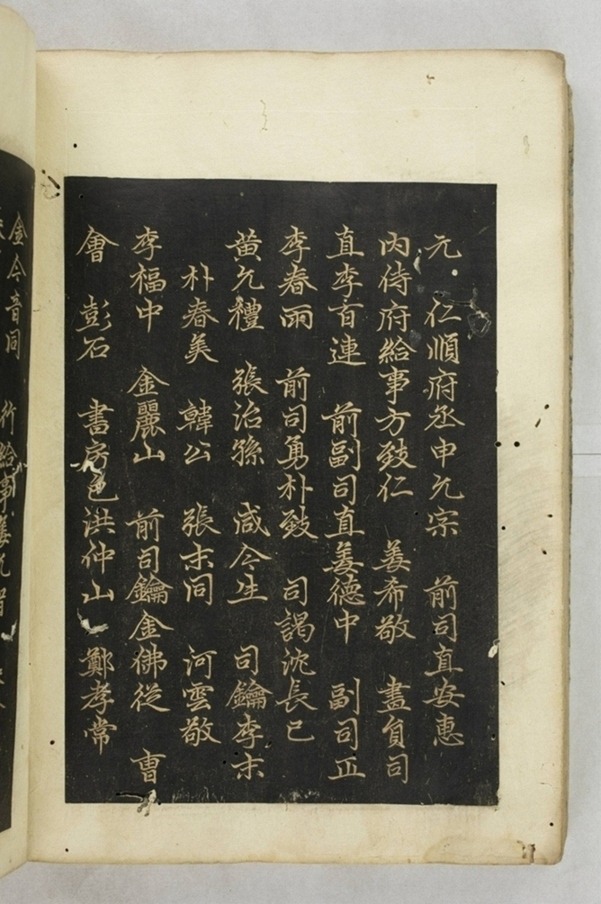 元 仁順府丞申允宗 前司直安惠
內侍府給事方致仁 姜希敬 畫員司
直李百連 前副司直姜德中 副司正
李春雨 前司勇朴致 司謁沈長己
黄允禮 張治孫 咸今生 司鑰李末
朴春美 韓公 張末同 河雲敬
李福中 金麗山 前司鑰金佛從 曺
會 彭石 書房色洪仲山 鄭孝常
金今音同
行給事姜